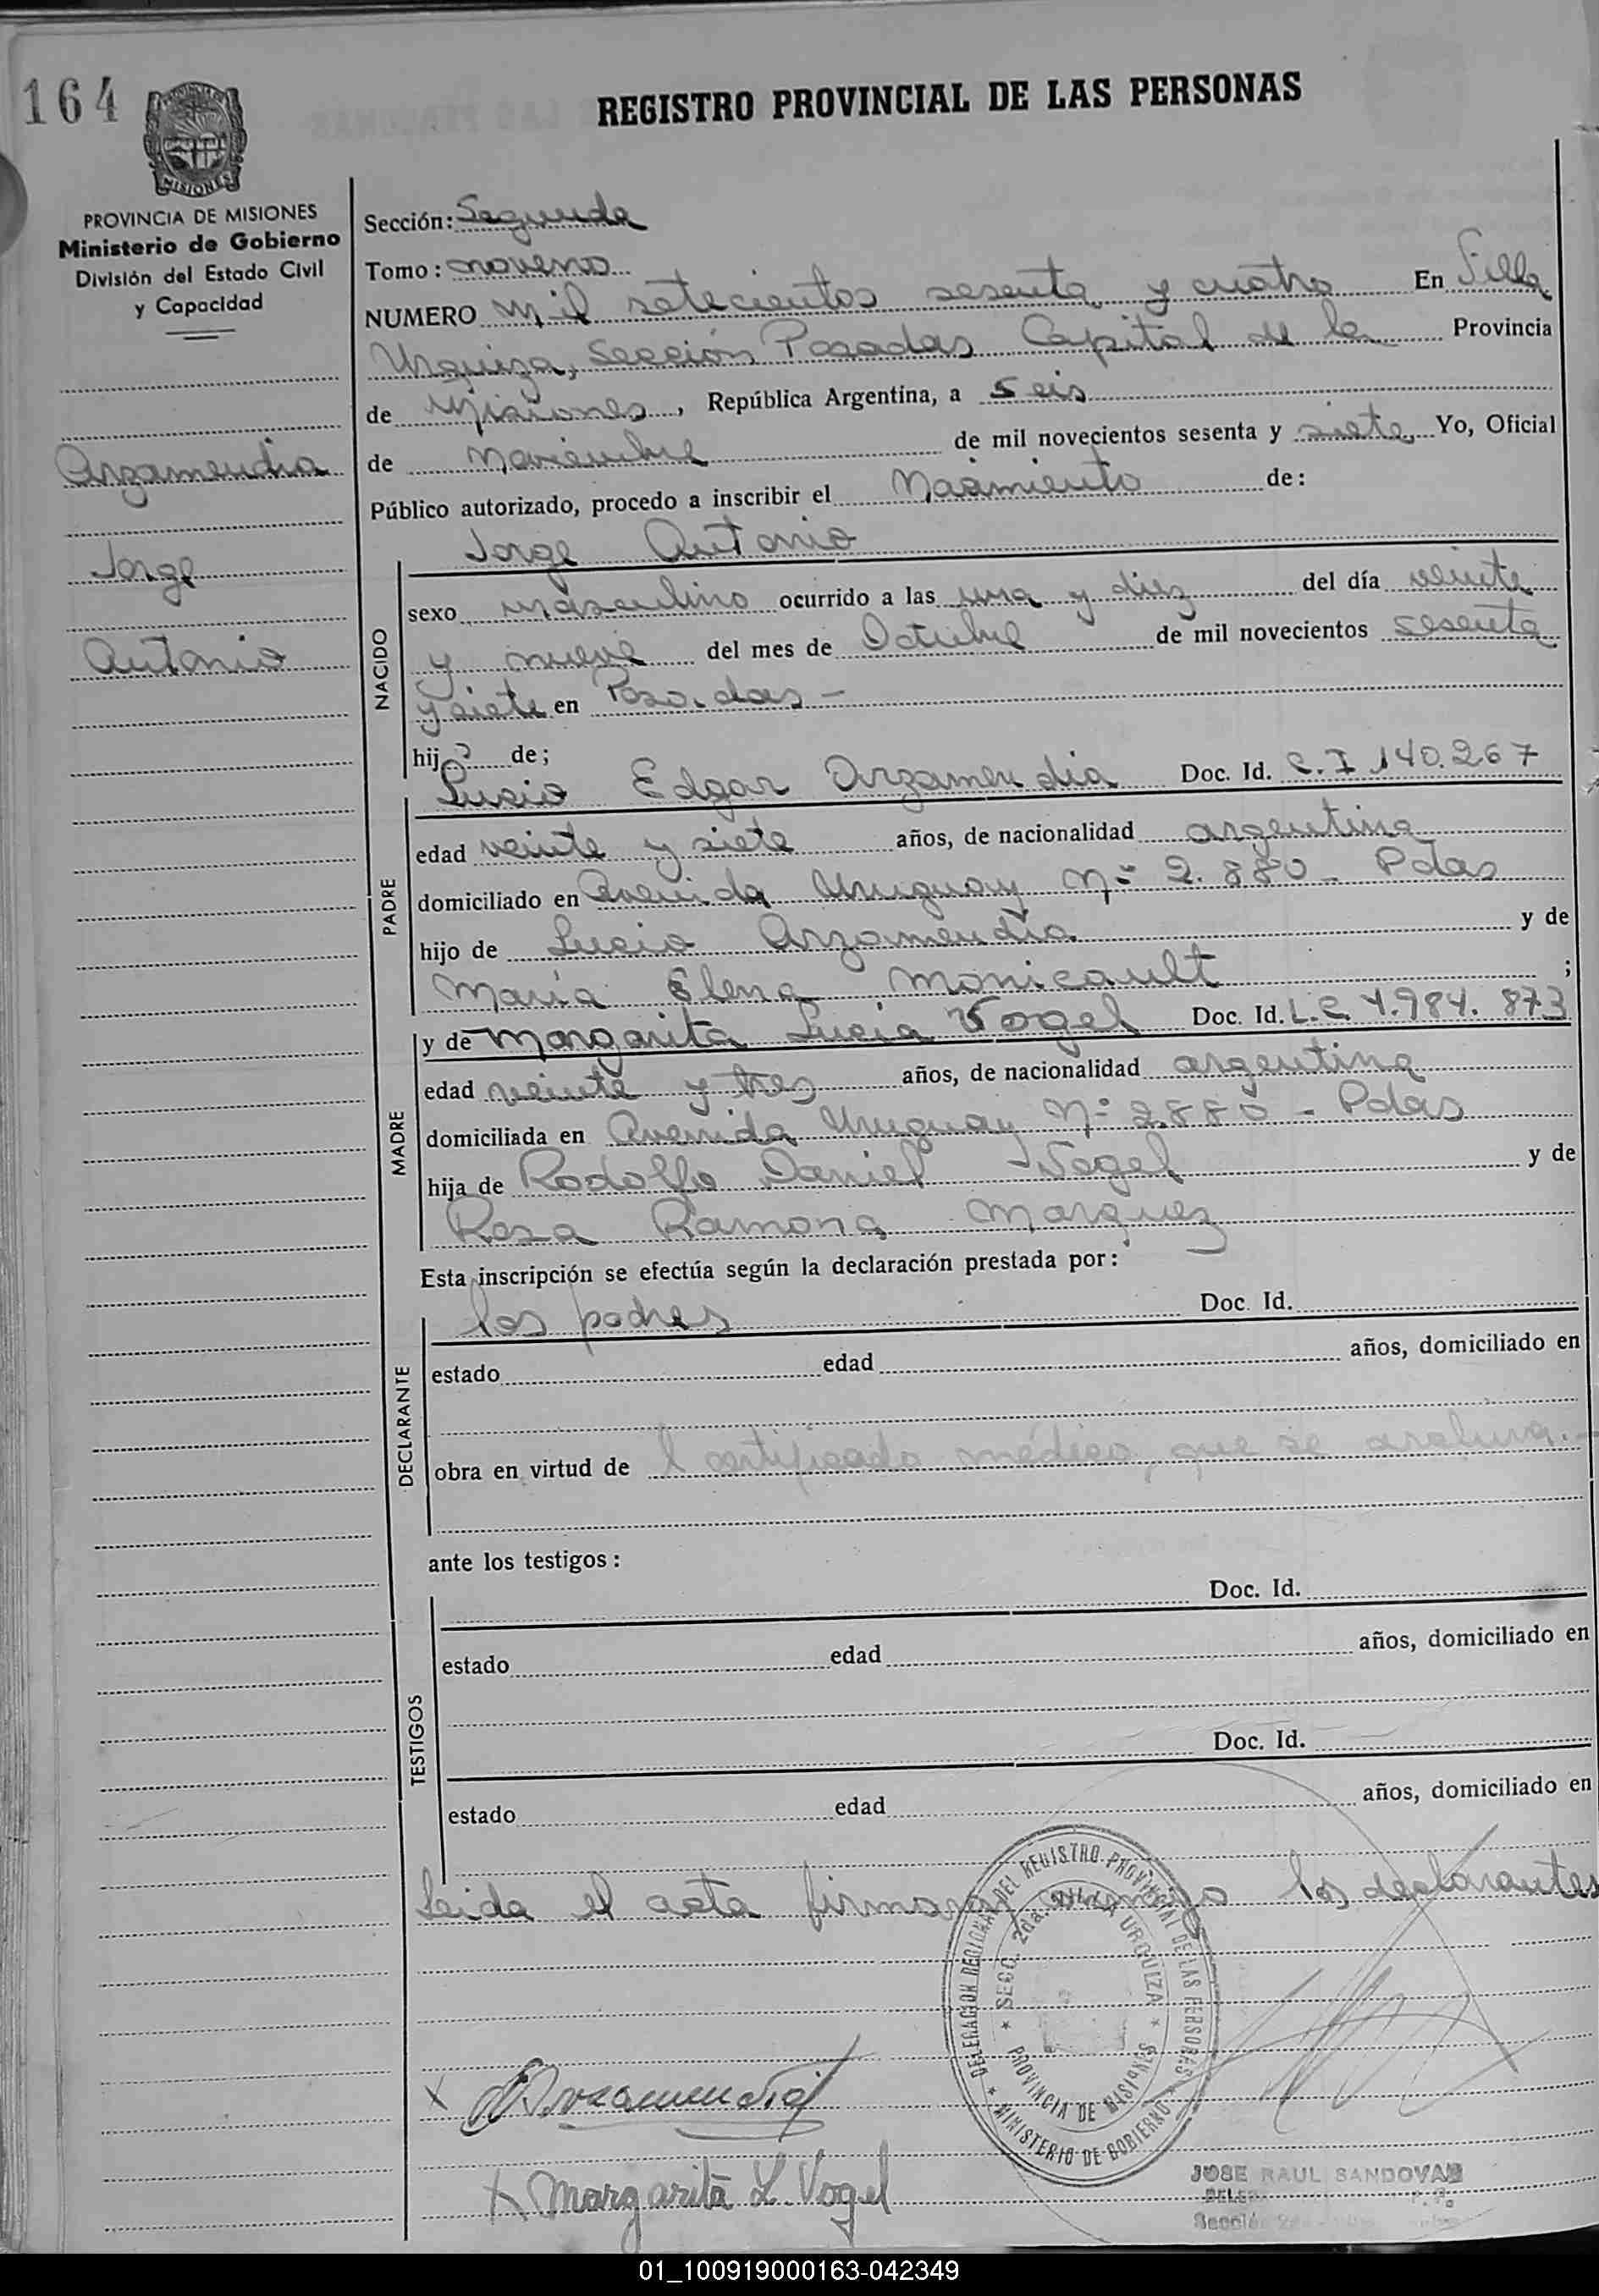 164
REGISTRO PROVINCIAL DE LAS PERSONAS
MISIONES
PROVINCIA DE MISIONES
Ministerio de Gobierno
División del Estado Civil
y Capacidad
Arzamendia
Jorge
Antonio
Sección: Segunda
Tomo: noveno
NUMERO mil setecientos sesenta y cuatro En Villa
Urquiza, Sección Posadas Capital de la Provincia
de Misiones, República Argentina, a seis
de Noviembre de mil novecientos sesenta y siete, Yo, Oficial
Público autorizado, procedo a inscribir el Nacimiento de:
Jorge Antonio
NACIDO
sexo masculino ocurrido a las una y diez del día veinte
y nueve del mes de Octubre de mil novecientos sesenta
y siete en Posadas -
hijo de;
Lucio Edgar Arzamendia Doc. Id. C.I 140.267
PADRE
edad veinte y siete años, de nacionalidad argentina
domiciliado en Avenida Uruguay Nº 2.880 - Pdas
hijo de Lucio Arzamendia y de
María Elena Monicault ;
y de Margarita Lucia Vogel Doc. Id. L.C. 4.984.873
MADRE
edad veinte y tres años, de nacionalidad argentina
domiciliada en Avenida Uruguay Nº 2880 - Pdas
hija de Rodolfo Daniel Vogel y de
Rosa Ramona Marquez
Esta inscripción se efectúa según la declaración prestada por:
los padres Doc. Id.
DECLARANTE
estado edad años, domiciliado en
obra en virtud de l certificado médico, que se archiva.-
ante los testigos:
Doc. Id.
TESTIGOS
estado edad años, domiciliado en
Doc. Id.
estado edad años, domiciliado en
Leida el acta firman conmigo los declarantes
DELEGACION REGIONAL DEL REGISTRO PROVINCIAL DE LAS PERSONAS
* MINISTERIO DE GOBIERNO *
* SECC. 2da. VILLA URQUIZA *
PROVINCIA DE MISIONES
x Arzamendia
x Margarita L. Vogel
JOSE RAUL SANDOVAL
01_100919000163-042349